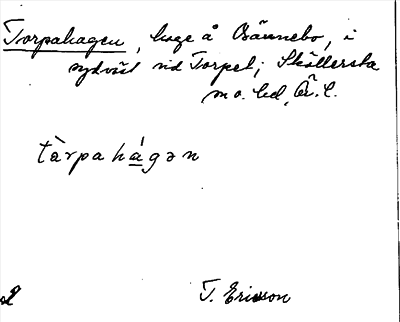 Torpahagen, hage å Bännebo, i
sydväst vid Torpet; Sköllersta
m o. hd, Ör. l.
tàrpahágən
T. Ericsson